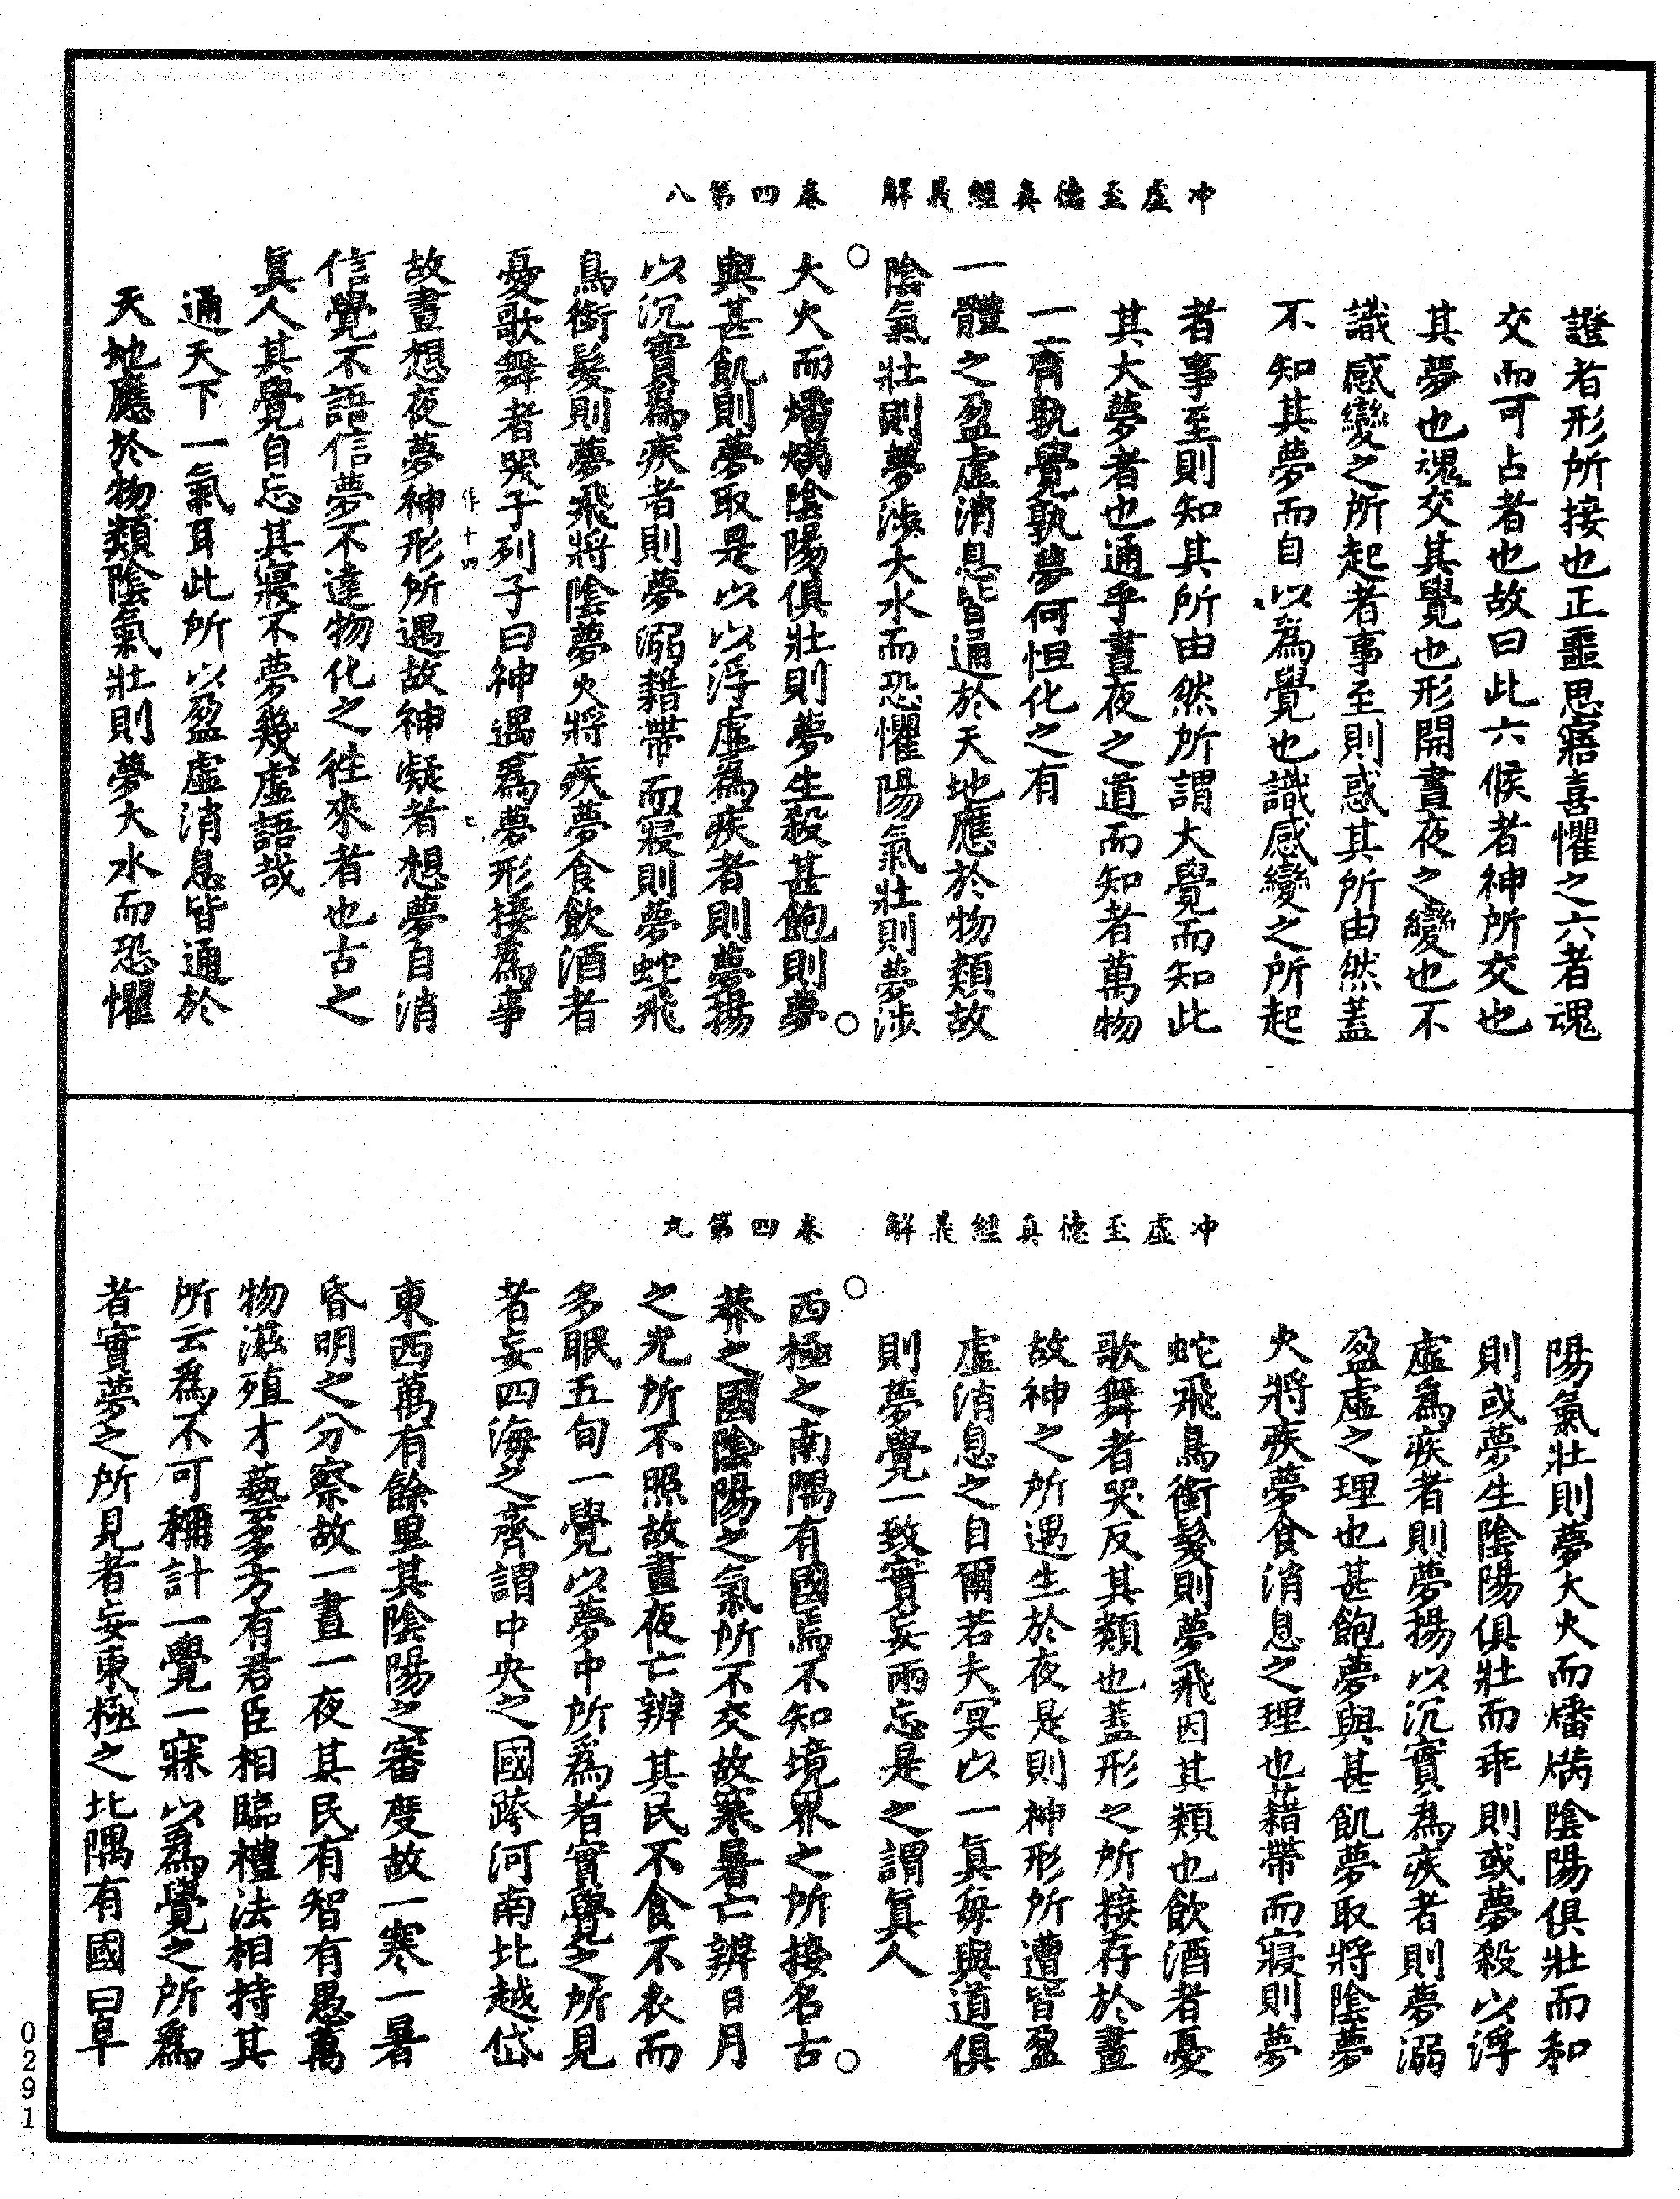 冲虛至德真經義解　卷四第八
證者形所接也正噩思寤喜懼之六者魂
交而可占者也故曰此六候者神所交也
其夢也魂交其覺也形開晝夜之變也不
識感變之所起者事至則惑其所由然蓋
不知其夢而自以為覺也識感變之所起
者事至則知其所由然所謂大覺而知此
其大夢者也通乎晝夜之道而知者萬物
一齊孰覺孰夢何怛化之有
一體之盈虛消息皆通於天地應於物類故
陰氣壯則夢涉大水而恐懼陽氣壯則夢涉
大火而燔焫陰陽俱壯則夢生殺甚飽則夢
與甚飢則夢取是以以浮虛為疾者則夢揚
以沉實為疾者則夢溺藉帶而寢則夢蛇飛
鳥銜髮則夢飛將陰夢火將疾夢食飲酒者
憂歌舞者哭子列子曰神遇為夢形接為事
作十四　七
故晝想夜夢神形所遇故神凝者想夢自消
信覺不語信夢不達物化之往來者也古之
真人其覺自忘其寢不夢幾虛語哉
通天下一氣耳此所以盈虛消息皆通於
天地應於物類陰氣壯則夢大水而恐懼
冲虛至德真經義解　卷四第九
陽氣壯則夢大火而燔焫陰陽俱壯而和
則或夢生陰陽俱壯而乖則或夢殺以浮
虛為疾者則夢揚以沉實為疾者則夢溺
盈虛之理也甚飽夢與甚飢夢取將陰夢
火將疾夢食消息之理也藉帶而寢則夢
蛇飛鳥銜髮則夢飛因其類也飲酒者憂
歌舞者哭反其類也蓋形之所接存於晝
故神之所遇生於夜是則神形所遭皆盈
虛消息之自爾若夫冥以一真每與道俱
則夢覺一致實妄兩忘是之謂真人
西極之南隅有國焉不知境界之所接名古
莽之國陰陽之氣所不交故寒暑亡辨日月
之光所不照故晝夜亡辨其民不食不衣而
多眠五旬一覺以夢中所為者實覺之所見
者妄四海之齊謂中央之國跨河南北越岱
東西萬有餘里其陰陽之審度故一寒一暑
昏明之分察故一晝一夜其民有智有愚萬
物滋殖才藝多方有君臣相臨禮法相持其
所云為不可稱計一覺一寐以為覺之所為
者實夢之所見者妄東極之北隅有國曰阜
0291